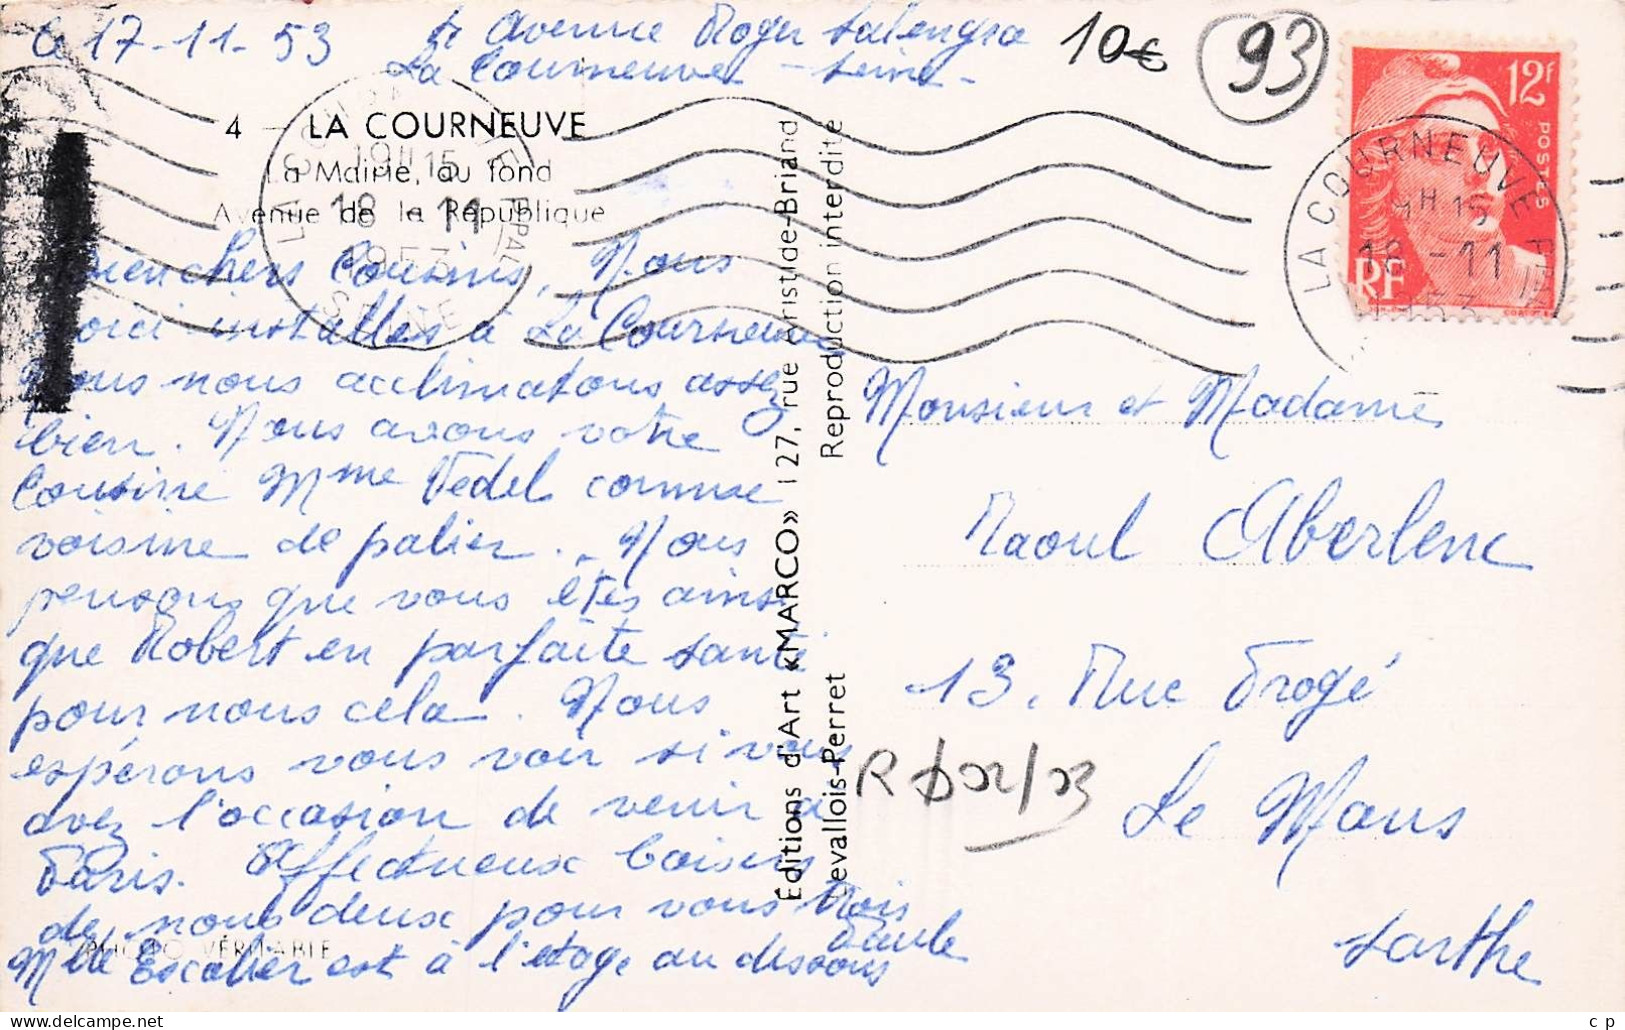 Le 17-11-53
4 Avenue Roger Salengro
La Courneuve - Seine -
10€
93
4 - LA COURNEUVE
La Mairie, au fond
Avenue de la République
Bien chers Cousins, Nous
voici installés à La Courneuve
Nous nous acclimatons assez
bien. Nous avons votre
Cousine Mme Vedel comme
voisine de palier. - Nous
pensons que vous êtes ainsi
que Robert en parfaite santé
pour nous cela. Nous
espérons vous voir si vous
avez l'occasion de venir à
Paris. Affectueux baisers
de nous deux pour vous trois
Paule
Mlle Escalier est à l'étage au dessous
PHOTO VÉRITABLE
Éditions d'Art «MARCO» 127, rue Aristide-Briand
Levallois-Perret Reproduction interdite
12f
POSTES
RF
LA COURNEUVE PPAL
19H15
18-11
1953
SEINE
LA COURNEUVE
18-11
1953
Monsieur et Madame
Raoul Aberlenc
13, Rue Trogé
Le Mans
Sarthe
c p